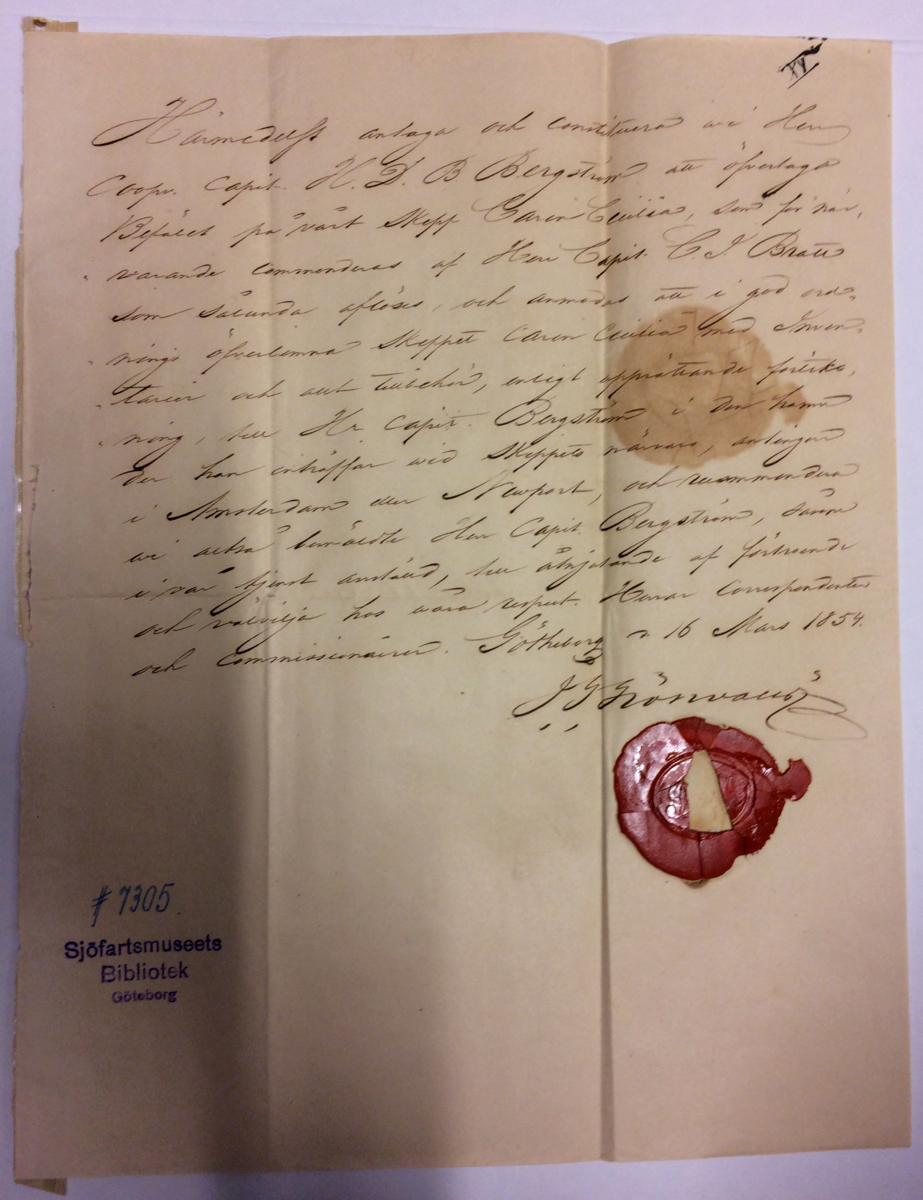 XV
Härmedelst antaga och constituera wi Herr
Coopv. Capit. H. D. B Bergström att öfvertaga
Befälet på vårt Skepp Caren Cecilia, som för när,
varande commenderas af Herr Capit. C. J. Bratt
som sålunda aflöses, och anmodas att i god ord,
nings öfverlemna Skeppet Caren Cecilia med Inven,
tarier och allt tillbehör, enligt upprättande förtek,
ning, till Hr Capit. Bergström i den hamn
der han inträffar wid Skeppets närvaro, antingen
i Amsterdam eller Newport, och recommendera
wi också bemäldte Herr Capit. Bergström, såsom
i vår tjenst anställd, till åtnjutande af förtroende
och välvilja hos våra respect. Herrar Correspondenter
och Commissionairer. Götheborg 16 Mars 1854.
J G Grönvall
# 7305.
Sjöfartsmuseets
Bibliotek
Göteborg